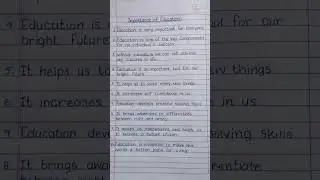 4. Education is
bright future
5. It helps us to
6. It increases
7. Education dev
8. It brings awa
Importance of Education
1. Education is very important for everyone.
2. Education is one of the key components
for an individual's success.
3. Without education we can not achieve
any success in life.
4. Education is an important tool for our
bright future.
5. It helps us to learn many new things.
6. It increases self confidence in us.
7. Education develops problem solving skills.
8. It brings awareness to differentiate
between right and wrong.
9. It makes us independent and helps us
to become a better citizen.
10. Education is essential to make the
world a better place for living.
ol for our
w things
us.
olving skills
rentiate